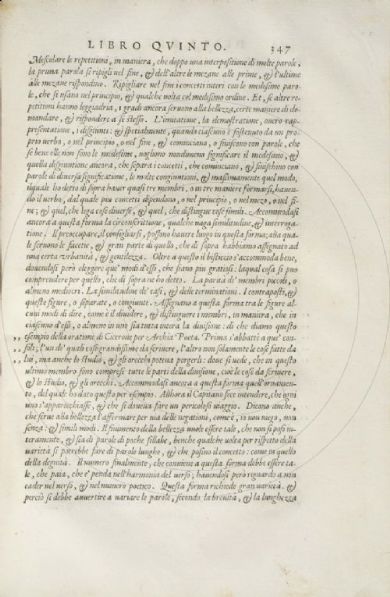 LIBRO QVINTO. 347
Mescolare le repetitioni, in maniera, che doppo una interpositione di molte parole,
la prima parola si ripigli nel fine, & dell'altre le mezane alle prime, & l'ultime
alle mezane rispondino. Ripigliare nel fin i concetti interi con le medesime parole,
che si usano nel principio, & qualche volta col medesimo ordine. Et, se altre repetitioni
hanno leggiadria, i gradi ancora servono alla bellezza, certe maniere di domandare,
& rispondere a se stesso. L'imitatione, la demostratione, overo rappresentatione,
i desgiunti: & spetialmente, quando ciascuno è sostenuto da un proprio
verbo, o nel principio, o nel fine, & cominciano, o finiscono con parole, che
se bene elle non sono le medesime, vogliono nondimeno significare il medesimo, &
quella disgiuntione ancora, che separa i concetti, che cominciano, & finiscono con
parole di diversa significatione, le molte congiuntioni, & massimamente quel modo,
il quale ho detto di sopra haver quasi tre membri, o in tre maniere formarsi, havendo
il verbo, dal quale piu concetti dipendono, o nel principio, o nel mezo, o nel fine;
& quel, che lega cose diverse, & quel, che distingue cose simili. Accommodasi
ancora a questa forma la circonscrittione, qualche vaga similitudine, & interrogatione.
Il preoccupare, il consigliarsi, possono havere luogo in questa forma; alla quale
servono le facetie, & gran parte di quello, che di sopra habbiamo assegnato ad
una certa urbanità, & gentilezza. Oltre a questo il bisticcio s'accommoda bene,
dovendosi però eleggere que' modi d'essi, che siano piu gratiosi: laqual cosa si può
comprendere per quello, che di sopra ne ho detto. La parità de' membri piccoli, o
almeno mediocri. La similitudine de' casi, & delle terminationi. I contraposti, &
queste figure, o separate, o congiunte. Assegnano a questa forma tra le figure alcuni
modi di dire, come è il dividere, & distinguere i membri, in maniera, che in
ciascuno d'essi, o almeno in uno sia tutta intera la divisione: di che diamo questo
esempio della oratione di Cicerone per Archia Poeta. Prima s'abbatté a que' consoli,
l'un de' quali cose grandissime da scrivere, l'altro non solamente le cose fatte da
lui, ma anche lo studio, & gli orecchi poteva porgerli: dove si vede, che in questo
ultimo membro sono comprese tutte le parti della divisione, cioè le cose da scrivere,
& lo studio, & gli orecchi. Accommodasi ancora a questa forma quell'ornamento,
del quale ho dato questo per esempio. Allhora il Capitano fece intendere, che ogni
uno s'apparecchiasse, & che si doveva fare un pericoloso viaggio. Dicono anche,
che serve alla bellezza l'affermare per via delle negationi, come è, io non nego, non
senza: & simili modi. Il finimento della bellezza vuole essere tale, che non si posi interamente,
& sia di parole di poche sillabe, benche qualche volta per rispetto della
varietà si potrebbe fare di parole lunghe, & che posino il concetto: come in quello
della degnità. Il numero finalmente, che conviene a questa forma debbe essere tale,
che paia, che e' penda nell'harmonia del verso; havendosi però riguardo a non
cader nel verso, & nel numero poetico. Questa forma richiede gran varietà. &
perciò si debbe avvertire a variare le parole, secondo la brevità, & la lunghezza